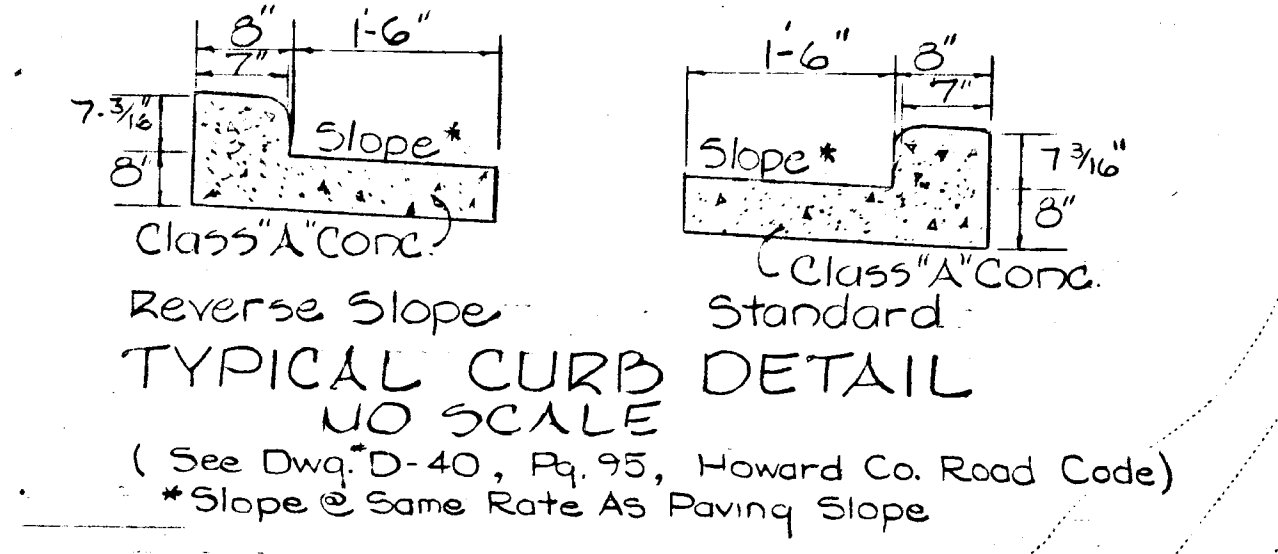 8" 1'-6"
7"
7-3/16"
Slope*
8'
Class "A" Conc.
Reverse Slope
1'-6" 8"
7"
Slope *
7 3/16"
8"
Class "A" Conc.
Standard
TYPICAL CURB DETAIL
NO SCALE
( See Dwg.#D-40, Pg. 95, Howard Co. Road Code)
*Slope @ Same Rate As Paving Slope